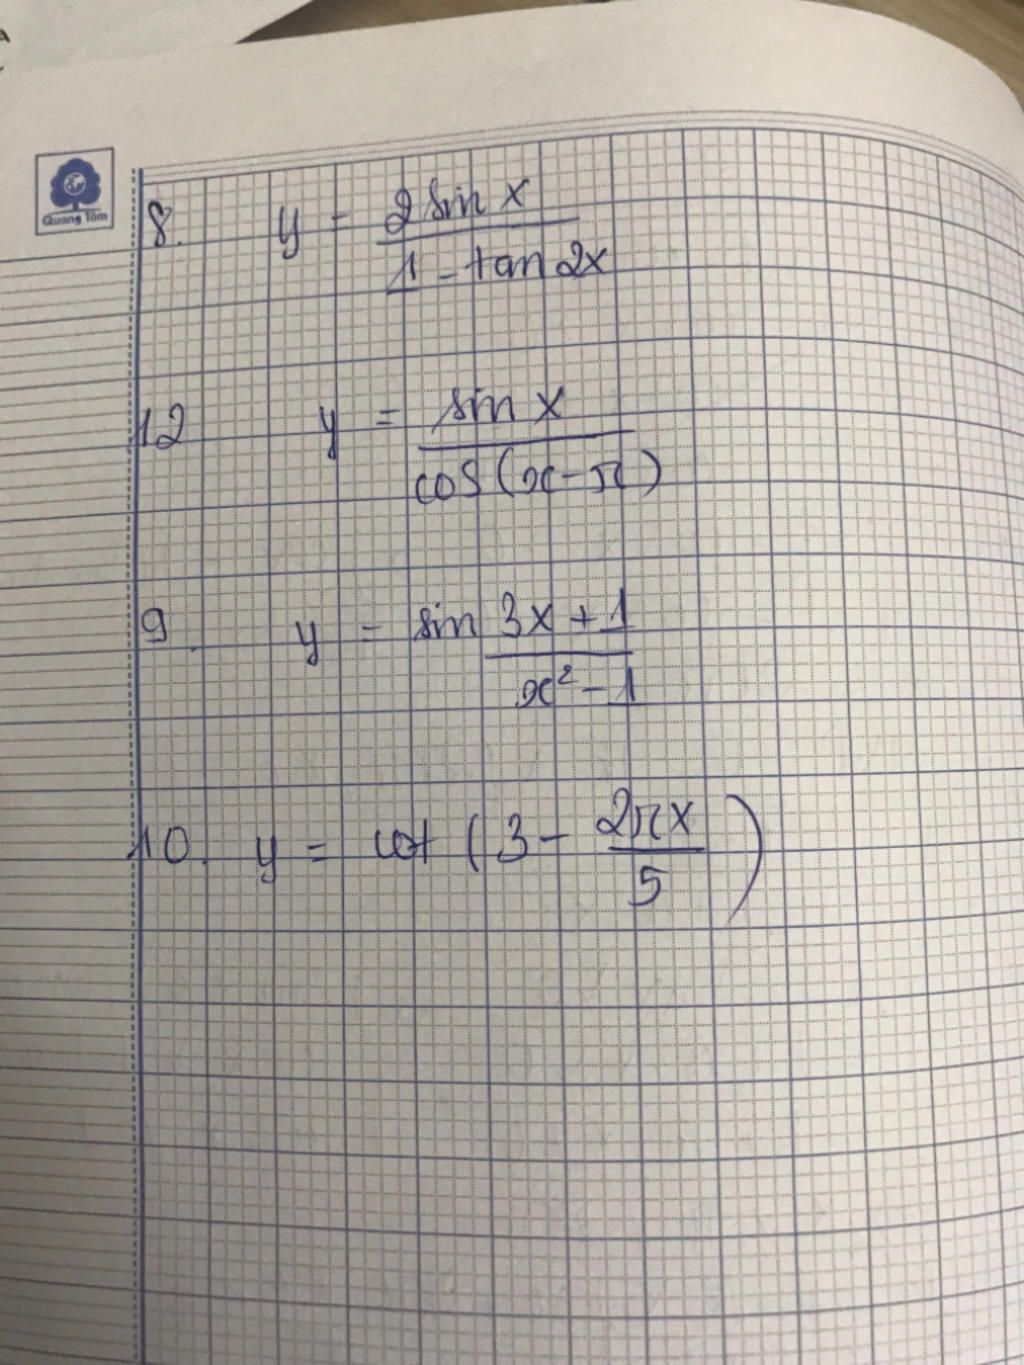 Quang Tâm
8. y = 2 sin x / 1 - tan 2x
12 y = sin x / cos (x - π)
9. y = sin 3x + 1 / x² - 1
10. y = cot ( 3 - 2πx / 5 )